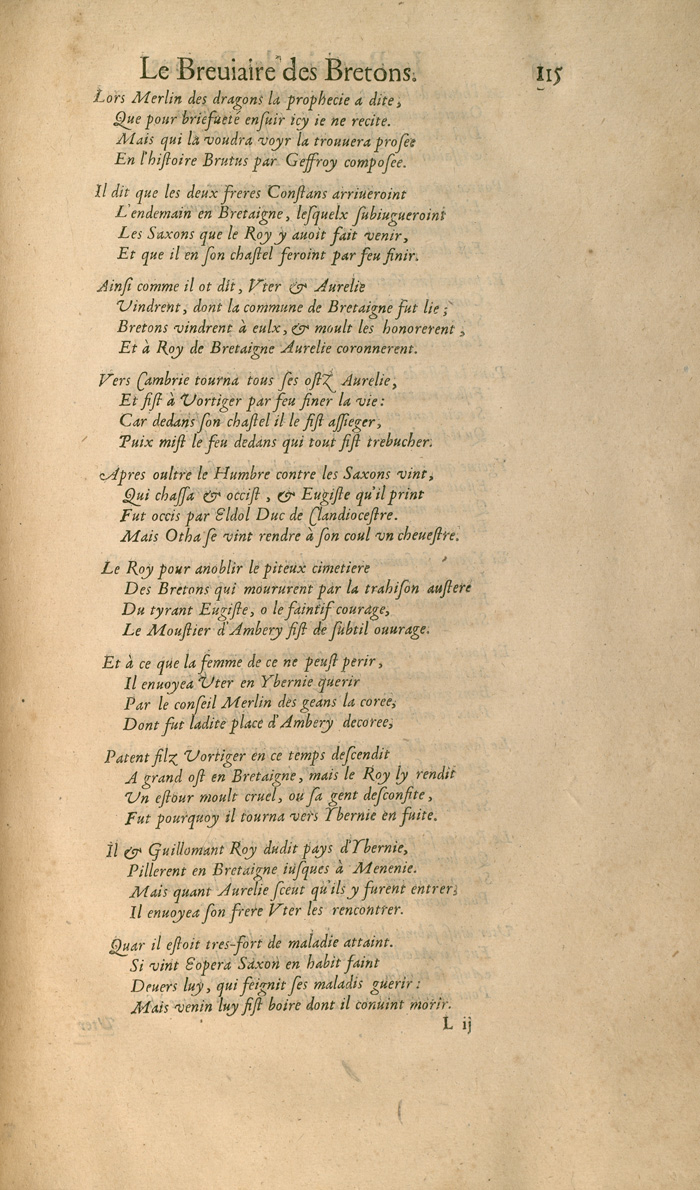 Le Breuiaire des Bretons. 115
Lors Merlin des dragons la prophecie a dite,
Que pour briefueté ensuir icy ie ne recite.
Mais qui là voudra voyr la trouuera prosee
En l'histoire Brutus par Geffroy composee.
Il dit que les deux freres Constans arriueroint
L'endemain en Bretaigne, lesquelx subiugueroint
Les Saxons que le Roy y auoit fait venir,
Et que il en son chastel feroint par feu finir.
Ainsi comme il ot dit, Vter & Aurelie
Vindrent, dont la commune de Bretaigne fut lie;
Bretons vindrent à eulx, & moult les honorerent,
Et à Roy de Bretaigne Aurelie coronnerent.
Vers Cambrie tourna tous ses ostz Aurelie,
Et fist à Vortiger par feu finer la vie:
Car dedans son chastel il le fist assieger,
Puix mist le feu dedans qui tout fist trebucher.
Apres oultre le Humbre contre les Saxons vint,
Qui chassa & occist, & Eugiste qu'il print
Fut occis par Eldol Duc de Clandiocestre.
Mais Otha se vint rendre à son coul vn cheuestre.
Le Roy pour anoblir le piteux cimetiere
Des Bretons qui moururent par la trahison austere
Du tyrant Eugiste, o le faintif courage,
Le Moustier d'Ambery fist de subtil ouurage.
Et à ce que la femme de ce ne peust perir,
Il enuoyea Vter en Ybernie querir
Par le conseil Merlin des geans la coree,
Dont fut ladite place d'Ambery decoree,
Patent filz Vortiger en ce temps descendit
A grand ost en Bretaigne, mais le Roy ly rendit
Un estour moult cruel, ou sa gent desconfite,
Fut pourquoy il tourna vers Ybernie en fuite.
Il & Guillomant Roy dudit pays d'Ybernie,
Pillerent en Bretaigne iusques à Menenie.
Mais quant Aurelie sceut qu'ils y furent entrer,
Il enuoyea son frere Vter les rencontrer.
Quar il estoit tres-fort de maladie attaint.
Si vint Eopera Saxon en habit faint
Deuers luy, qui feignit ses maladis guerir:
Mais venin luy fist boire dont il conuint morir.
L ij